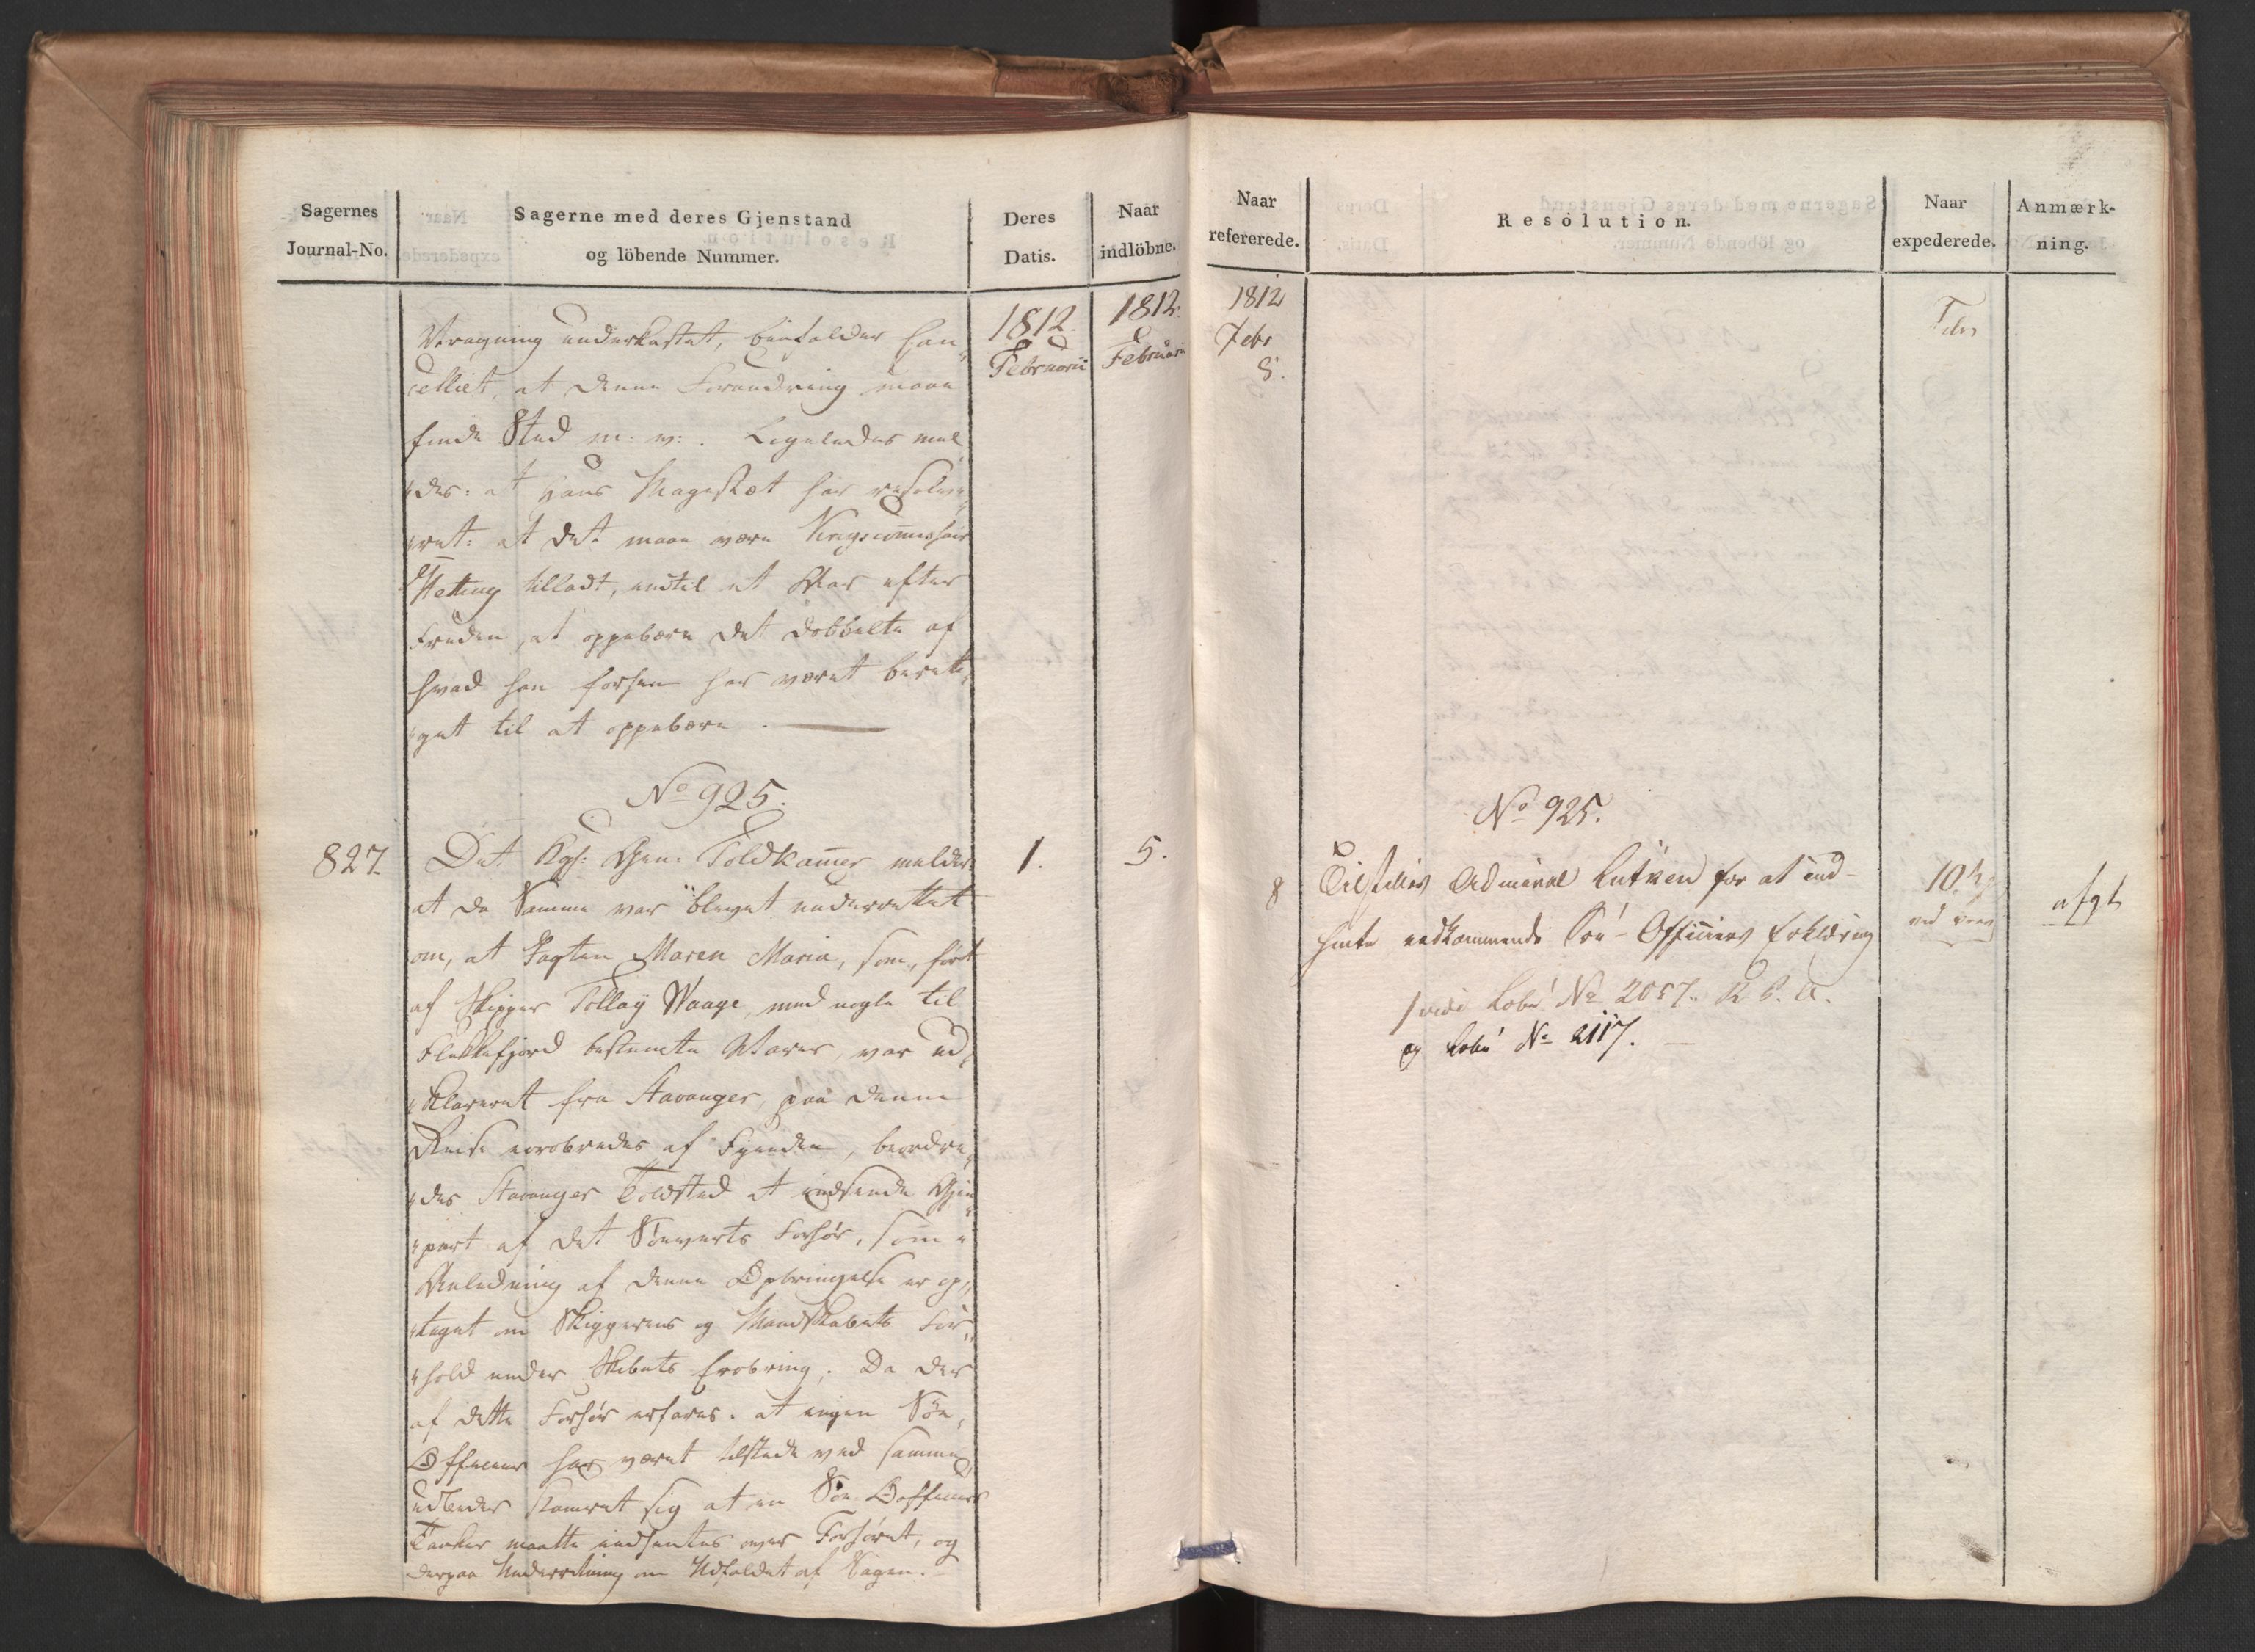 Sagernes
Journal-No.
Sagerne med deres Gjenstand
og löbende Nummer.
Deres
Datis.
Naar
indlöbne.
1812.
Februarii
1812.
Februarii
Vragning underkastet, bifalder Can„
celliet, at denne Forandring maae
finde Sted m: v: . Ligeledes mel
„des: at Hans Magestæt har resolve„
„ret: at det maae være Krigscom̄issair
Hetting tilladt, indtil et Aar efter
Freden, at oppebære det dobbelte af
hvad han forhen har været beret„
„get til at oppebære . —
No 925.
827.
Det Kgl: Gen: Toldkam̄er melder:
at da Samme var blevet underrettet
om, at Jagten Maren Maria, som, ført
af Skipper Tollag Waage, med nogle til
Flekkefjord bestemte Varer, var ud„
„klareret fra Stavanger, paa denne
Reise erobredes af Fjenden, beordre„
„des Stavanger Toldsted at indsende Gjen„
„part af det Søeværts Forhør, som i
Anledning af denne Opbringelse er op„
„taget om Skipperens og Mandskabets For„
„hold under Skibets Erobring. Da der
af dette Forhør erfares: at ingen Søe„
Officeer har været tilstede ved samme,
udbeder Kamret sig at en Søe Officeers
Tanker maatte indhentes over Forhøret, og
derpaa Underretning om Udfaldet af Sagen.
1.
5.
Naar
refererede.
Resolution.
Naar
expederede.
Anmærk-
ning.
1812
Febr
8.
Febr
No 925.
8
Tilstilles Admiral Lütken for at ind-
hente vedkommende Søe-Officiers Erklæring
10.
afgt
/vide Lobe No 2057.
og Lobe No 2117. —